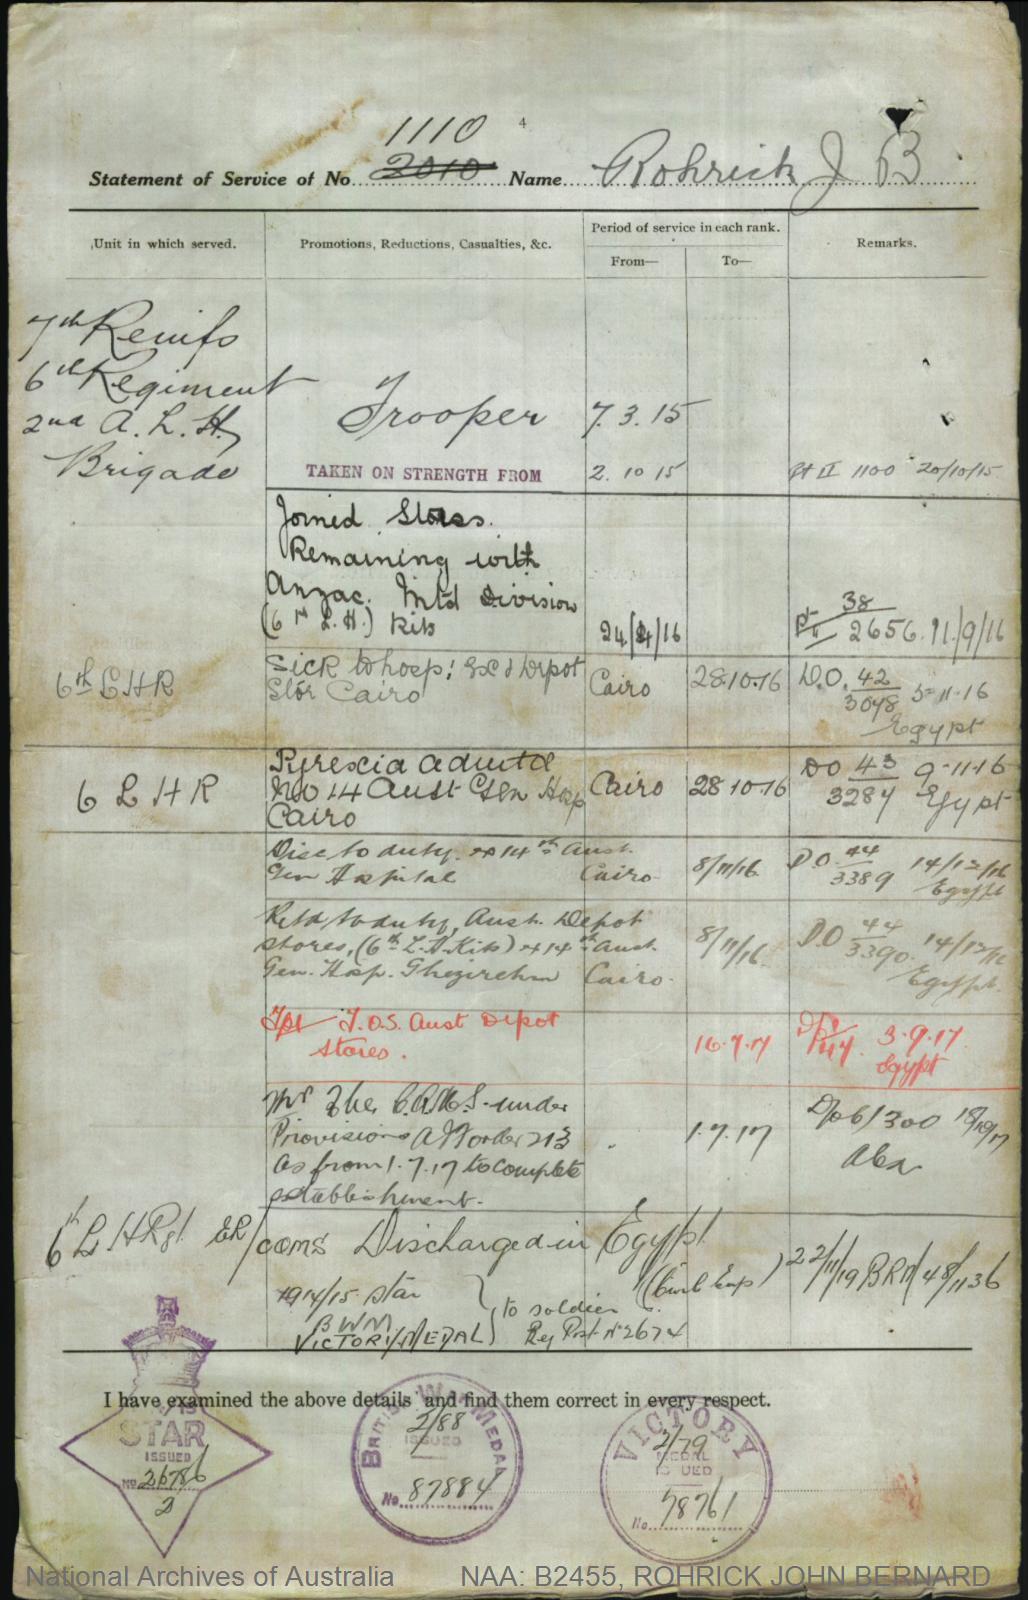 4
1110
Statement of Service of No. 2010 Name Rohrick J B
Unit in which served.
Promotions, Reductions, Casualties, &c.
Period of service in each rank.
From—
To—
Remarks.
7th Reinfs
6th Regiment
2nd A. L. H.
Brigade
Trooper 7.3.15
TAKEN ON STRENGTH FROM 2. 10 15 Pt II 1100 20/10/15
Joined Stores.
Remaining with
Anzac. Mtd Division
(6 L.H.) Kits 24/4/16 Pt II 38/2656. 11/9/16
6th L H R Sick to hosp: Depot Cairo 28.10.16 D.O. 42/3048 5-11-16
Stor Cairo Egypt
6 L H R Pyrexia admttd
No 14 Aust Gen Hosp Cairo 28 10.16 DO 43/3284 9-11-16
Cairo Egypt
Disc to duty. ex 14th Aust.
Gen Hospital Cairo 8/11/16 D.O. 44/3389 14/12/16
Egypt
Retd to duty, Aust. Depot
stores, (6th L.H. Kits) ex 14th Aust. 8/11/16. D.O 44/3390. 14/12/16
Gen. Hosp. Ghezireh Cairo. Egypt.
T.O.S. Aust Depot
stores. 16.7.17 3.9.17
Egypt
to be C.Q.M.S. under
Provisions A I F order 213 1.7.17 61300 18/10/17
as from 1.7.17 to complete
establishment.
6th L H Rgt ER/CQMS Discharged in Egypt
22/11/19 BRM 48/1136
1914/15 Star
B W M
VICTORY MEDAL } to soldier
Reg Post No 2674
I have examined the above details and find them correct in every respect.
STAR
ISSUED
No 26786
D
BRITISH WAR MEDAL
2/88
ISSUED
No. 87884
VICTORY
2/79
MEDAL
ISSUED
No. 78761
National Archives of Australia NAA: B2455, ROHRICK JOHN BERNARD